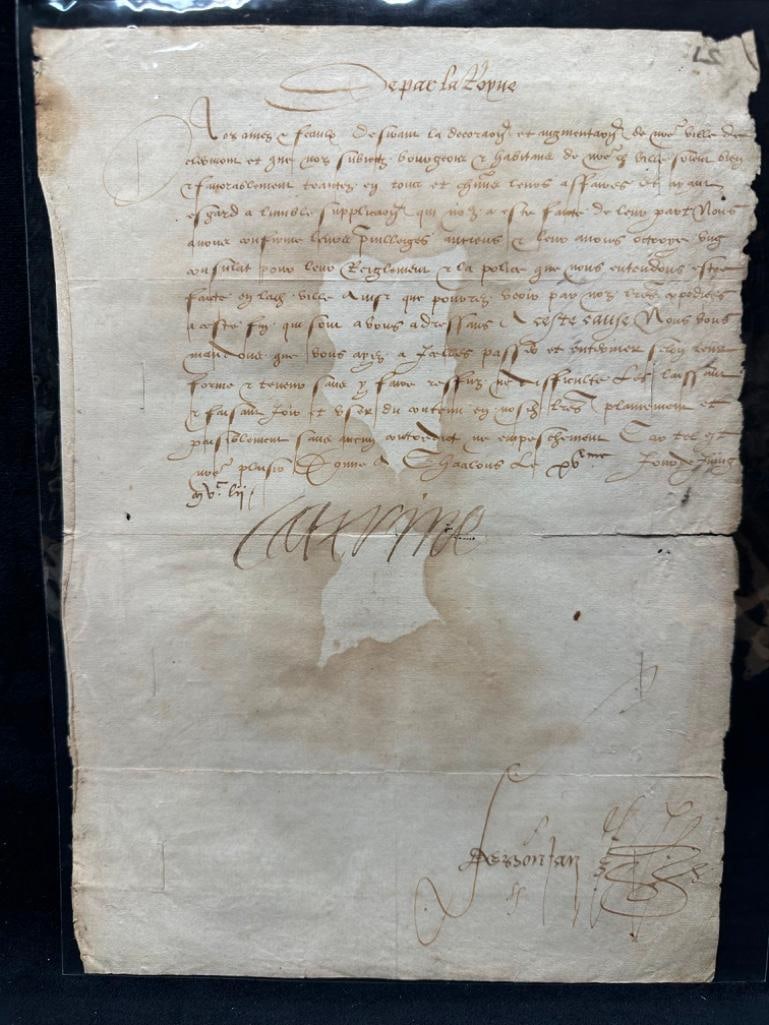 De par la Royne
Nos amez & feaulx Desirant la decoraon et augmentaon de nre ville de
clermont et que noz subiectz bourgeois & habitans de nred ville soient bien
& favorablement traictez en tous et chūns leurs affaires Et ayant
esgard a lumble supplicaon qui nous a este faicte de leur part Nous
avons confirme leurs privilleiges antiens & leur avons octroye ung
consulat pour leur Reiglement & la police que nous entendons estre
faicte en lad ville Ainsi que pourrez veoir par noz lres expediees
a ceste fin qui sont a vous adressans A ceste cause Nous vous
mandons que vous ayez a Icelles passer et enteriner selon leur
forme & teneur sans y faire reffuz ne difficulte Les laissant
& faisant Joir et user du contenu en nosd lres plainement et
paisiblement sans aucun contredict ne empeschement Car tel est
nre plaisir Donne A Chaalons Le xvme Jour de Juing
mvc lii
Caterine